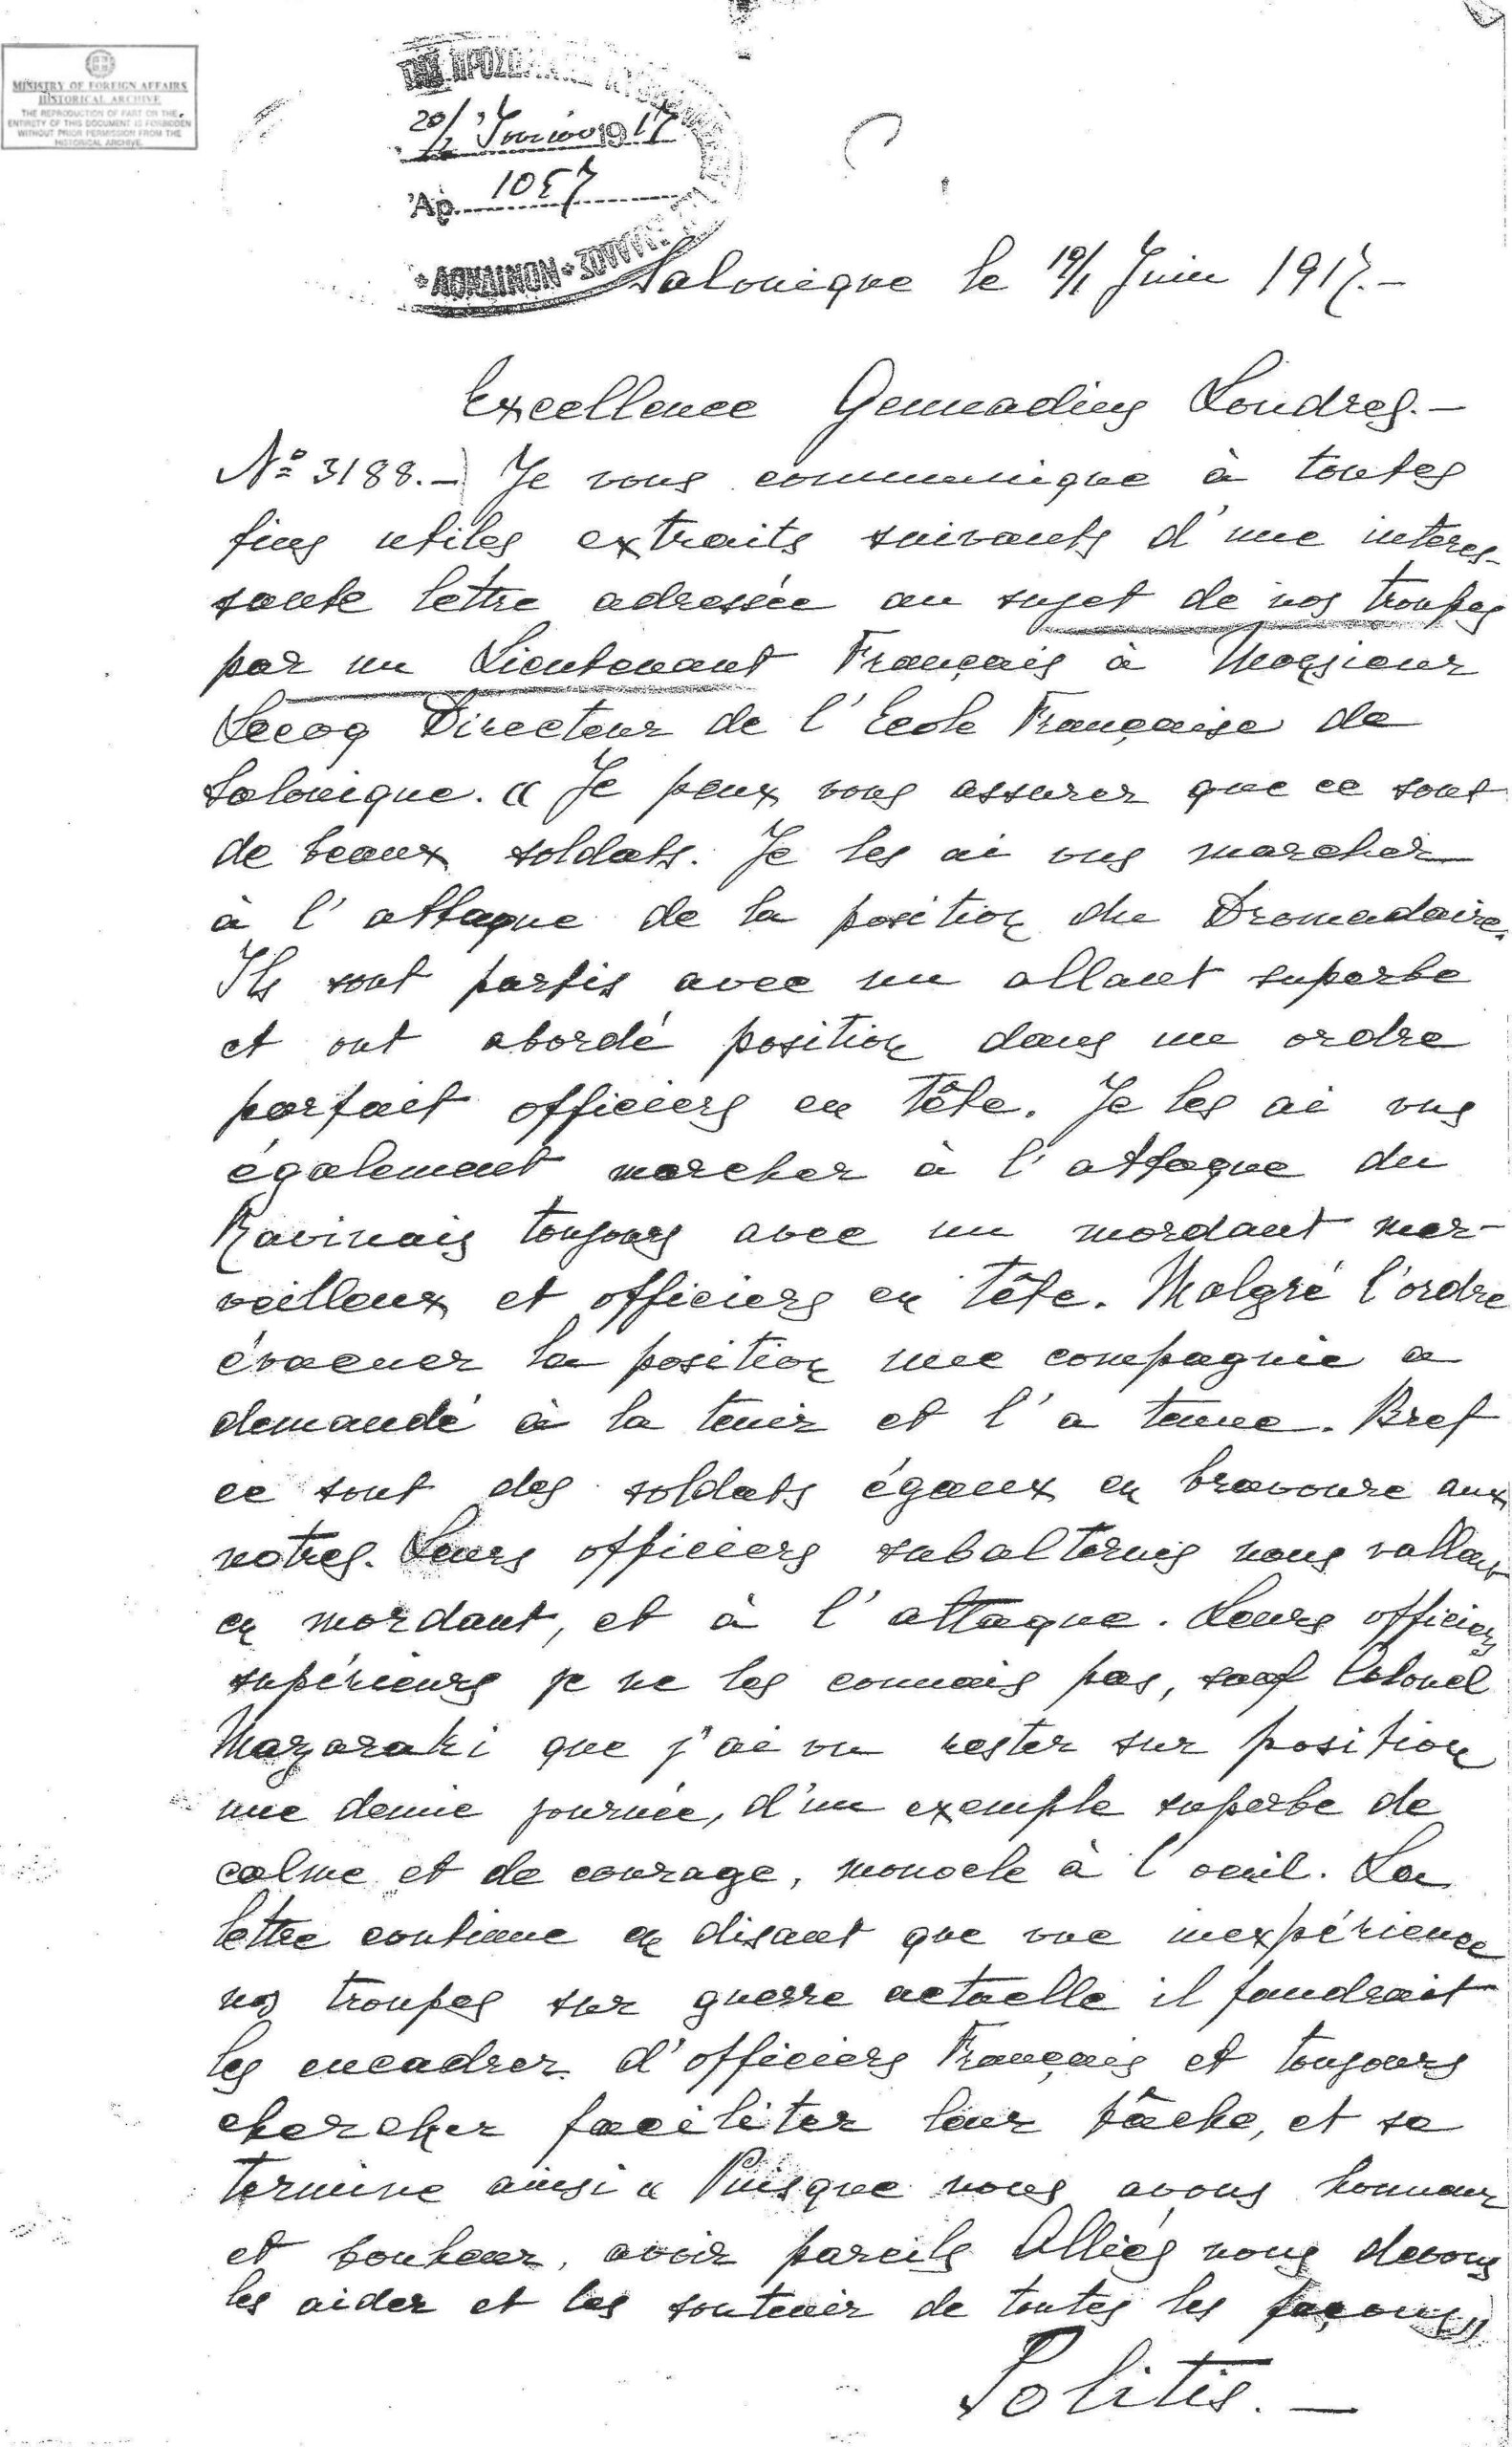 MINISTRY OF FOREIGN AFFAIRS
HISTORICAL ARCHIVE
THE REPRODUCTION OF PART OR THE
ENTIRETY OF THIS DOCUMENT IS FORBIDDEN
WITHOUT PRIOR PERMISSION FROM THE
HISTORICAL ARCHIVE.
20/2 Ἰουνίου 1917
Ἀρ. 1057
Salonique le 19/1 Juin 1917.-
Excellence Gennadius Londres.-
No 3188.-) Je vous communique à toutes
fins utiles extraits suivants d'une interes-
sante lettre adressée au sujet de nos troupes
par un Lieutenant Français à Monsieur
Lecoq Directeur de l'Ecole Française de
Salonique. « Je peux vous assurer que ce sont
de beaux soldats. Je les ai vus marcher
à l'attaque de la position du Dromadaire.
Ils sont partis avec un allant superbe
et ont abordé position dans un ordre
parfait officiers en tête. Je les ai vus
également marcher à l'attaque du
Ravinais toujours avec un mordant mer-
veilleux et officiers en tête. Malgré l'ordre
évacuer la position une compagnie a
demandé à la tenir et l'a tenue. Bref
ce sont des soldats égaux en bravoure aux
notres. Leurs officiers subalternes nous vallent
en mordant, et à l'attaque. Leurs officiers
supérieurs je ne les connais pas, sauf Colonel
Mazaraki que j'ai vu rester sur position
une demie journée, d'un exemple superbe de
calme et de courage, monocle à l'oeuil. La
lettre continue en disant que vue inexpérience
nos troupes sur guerre actuelle il faudrait
les encadrer d'officiers Français et toujours
chercher faciliter leur tâche, et se
termine ainsi « Puisque nous avons honneur
et bonheur, avoir pareils Alliés nous devons
les aider et les soutenir de toutes les façons »
Politis.-